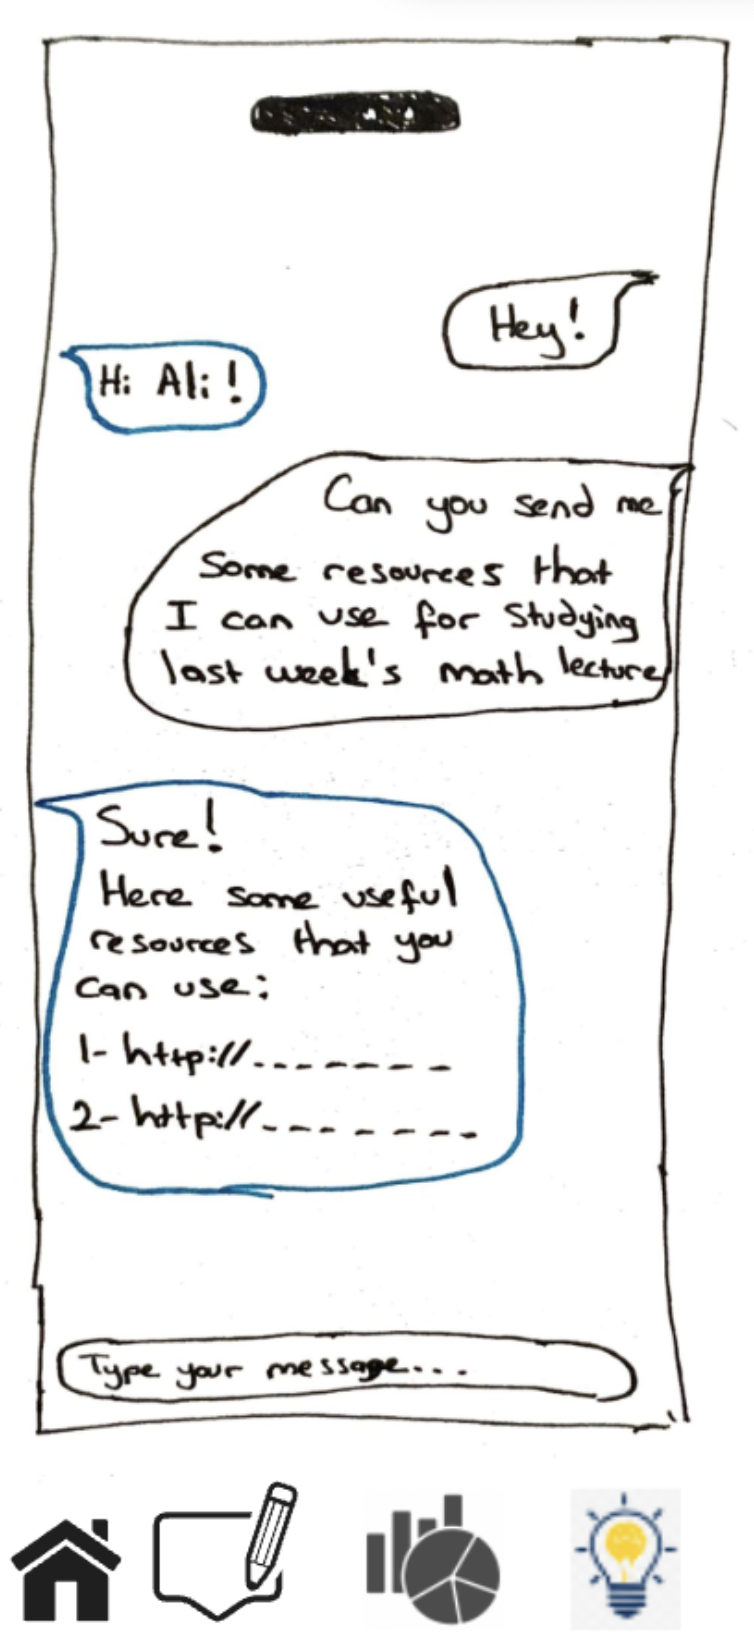 Hey!
Hi Ali!
Can you send me
Some resources that
I can use for Studying
last week's math lecture
Sure!
Here some useful
resources that you
can use:
1- http://.......
2- http://.......
Type your message...